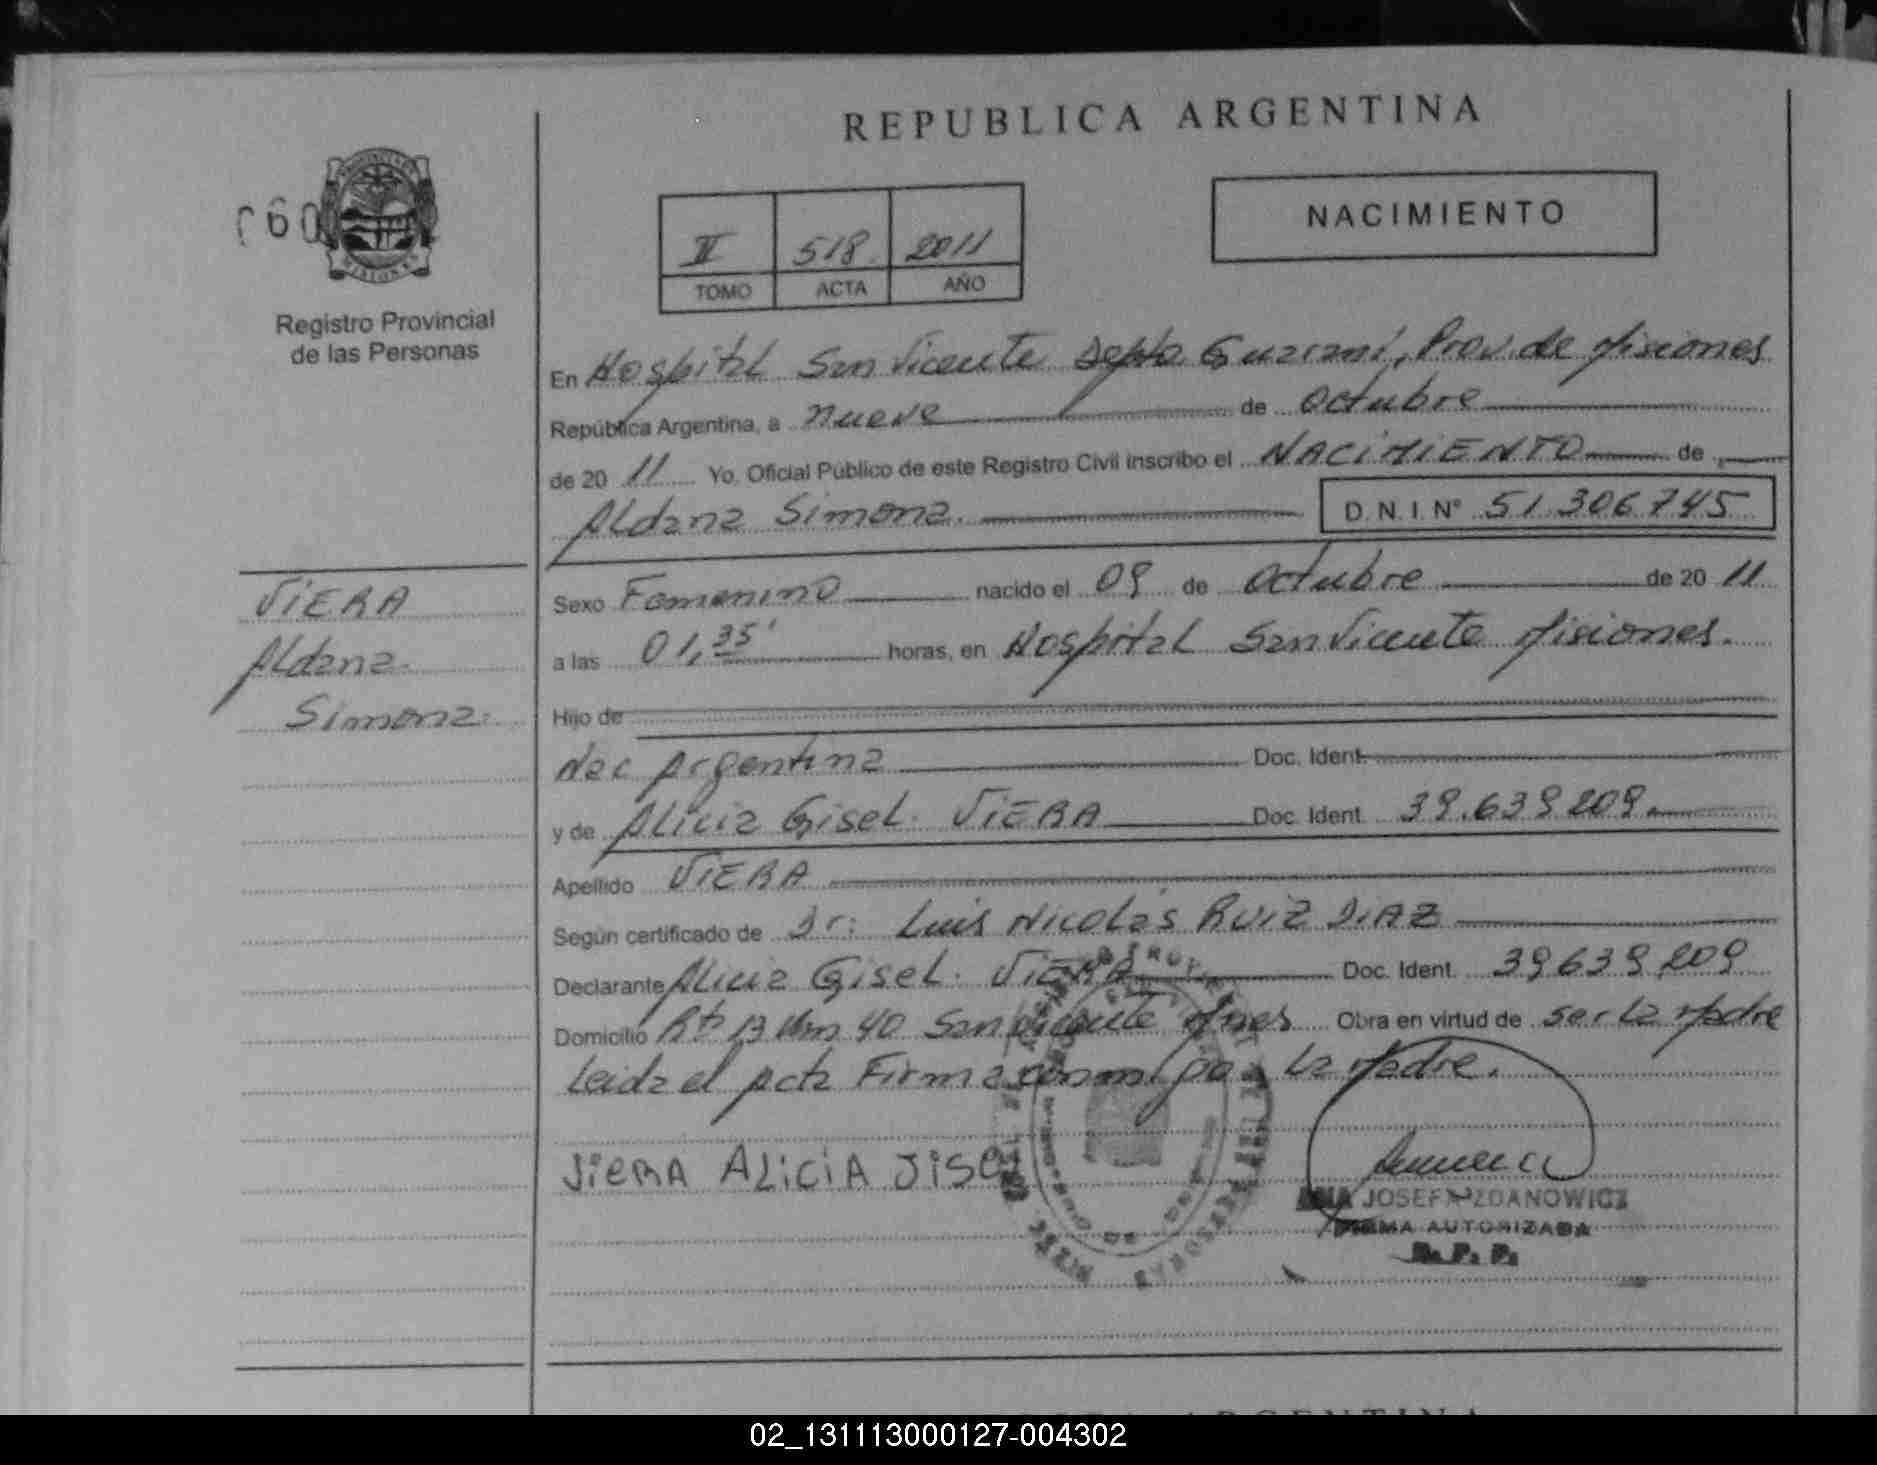 REPUBLICA ARGENTINA
NACIMIENTO
060
II 518 2011
TOMO ACTA AÑO
Registro Provincial
de las Personas
En Hospital San Vicente Depto Guaraní, Prov. de Misiones
República Argentina, a nueve de Octubre
de 20 11 Yo, Oficial Público de este Registro Civil inscribo el NACIMIENTO de
Aldana Simona. D.N.I. N° 51.306.745
VIERA
Aldana
Simona.
Sexo Femenino nacido el 09 de Octubre de 20 11
a las 01,35' horas, en Hospital San Vicente Misiones.
Hijo de
Nac Argentina Doc. Ident.
y de Alicia Gisel. VIERA Doc. Ident. 39.639.209.
Apellido VIERA
Según certificado de Dr: Luis Nicolás RUIZ DIAZ
Declarante Alicia Gisel. VIERA Doc. Ident. 39639209
Domicilio Rta 13 Km 40 San Vicente Mnes Obra en virtud de ser la Madre
Leida el Acta Firma conmigo la Madre.
VieRA ALiCiA JiSeL
JOSEFA ZDANOWICZ
FIRMA AUTORIZADA
R. P. P.
02_131113000127-004302